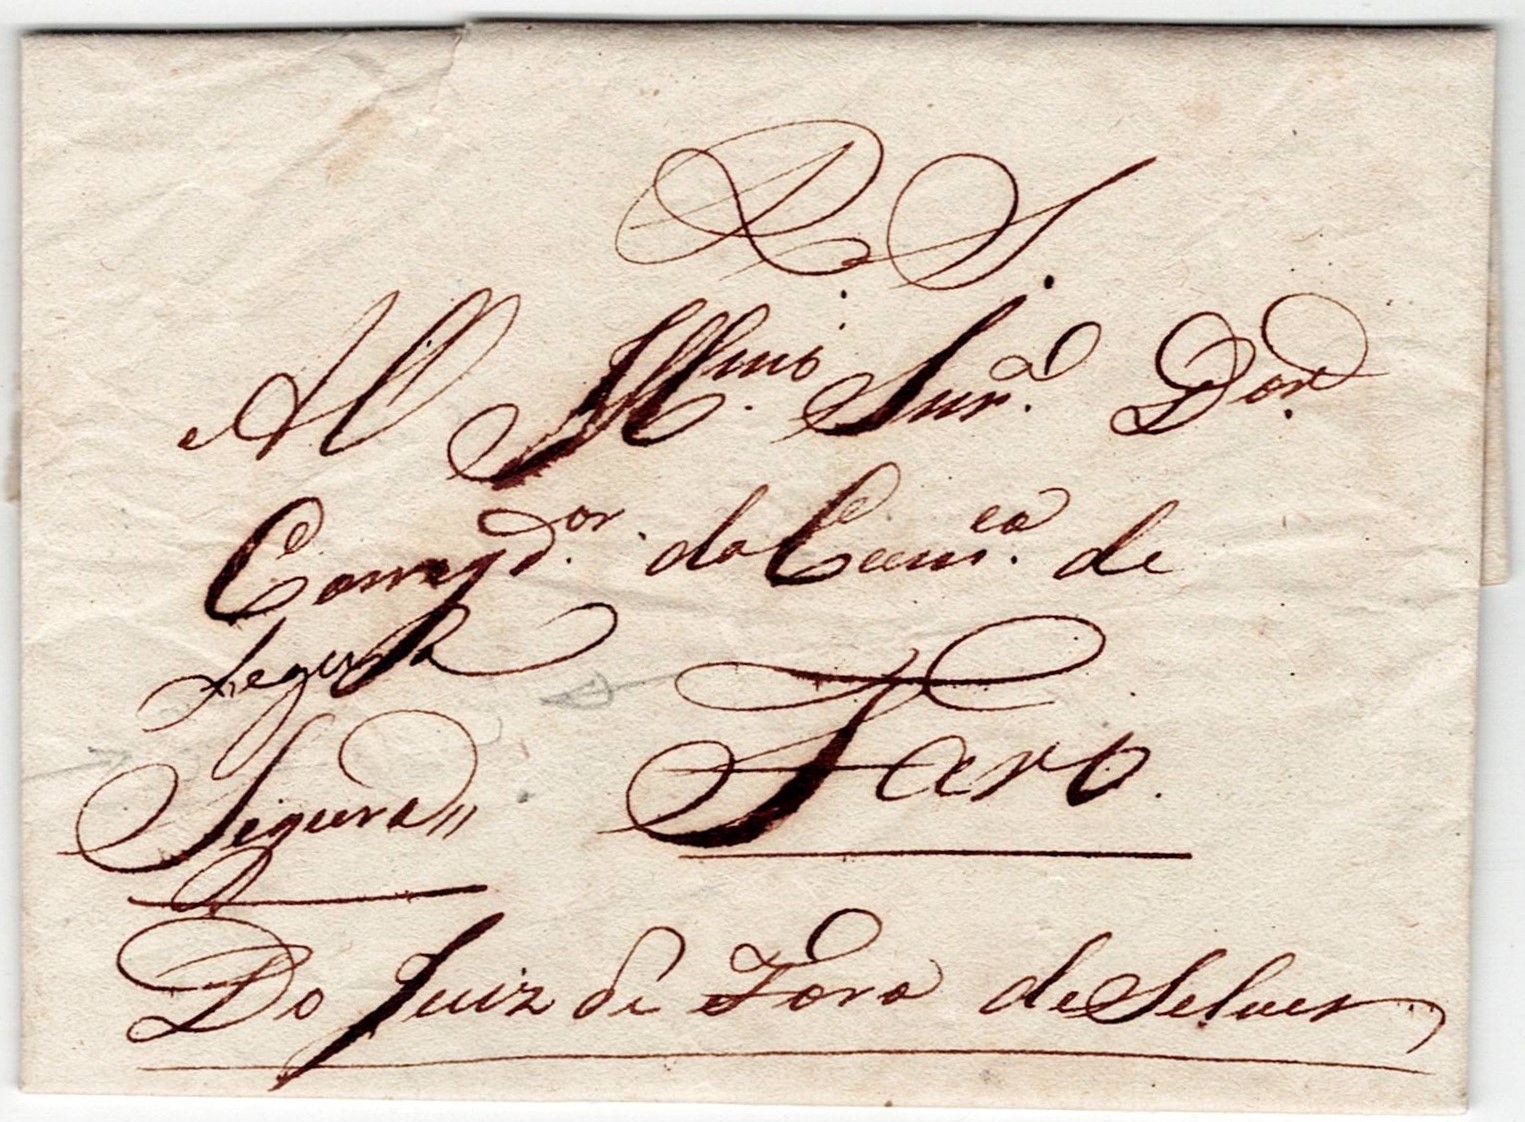 R. S.
Al Illmo. Snr. Dor.
Corregdor. da Comca. de
Segura
Faro.
Segura //
Do Juiz de Fora de Selves